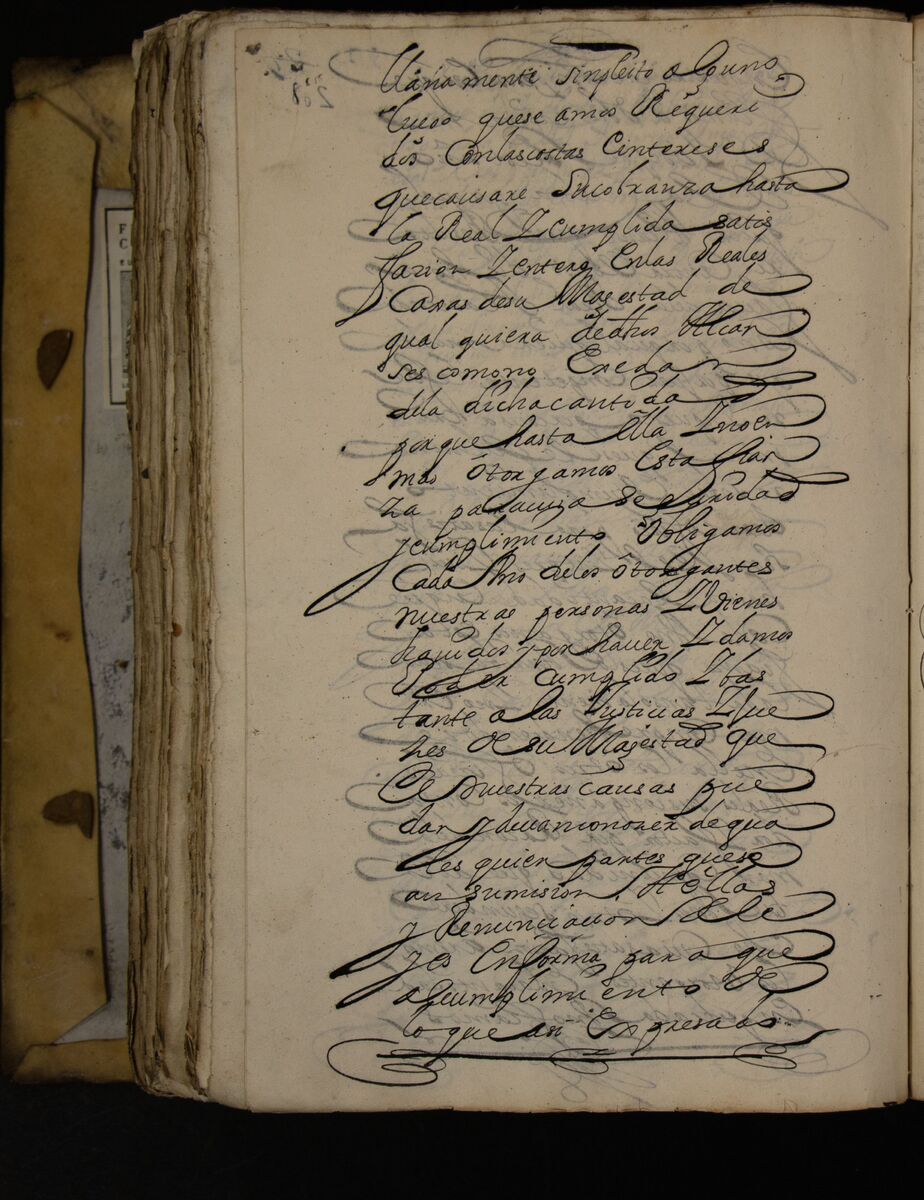 llanamente sinpleito alguno
luego quese amos Requeri
dos Conlascostas Cintereses
quecausare Sucobranza hasta
la Real Y cumplida satis
fazion Y entero Enlas Reales
Caxas desu Magestad de
qual quiera dedhos Alcan
ses como no Exedan
dela dichacantidad
porque hasta Ella Y noen
mas otorgamos Esta fian
za paracuia seguridad
y cumplimiento obligamos
Cada Uno delos otorgantes
nuestras personas Y Vienes
hauidos y por hauer Y damos
Poder Cumplido Y bas
tante a las Justicias Y Jue
hes de su Magestad que
De nuestras causas pue
dan y deuanconoxer de qua
les quier partes quese
an sumision A ellas
y Renunciacion de le
yes En forma para que
al cumplimiento de
lo que asi Expresado